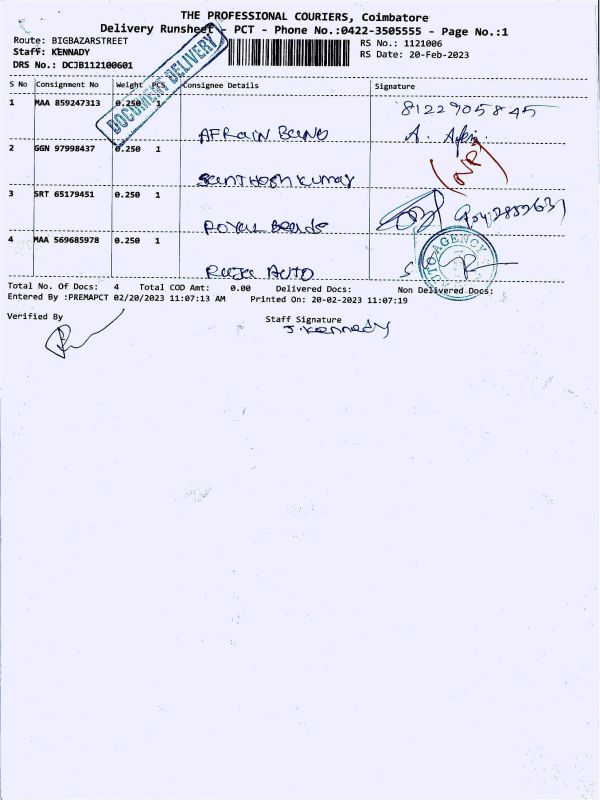 THE PROFESSIONAL COURIERS, Coimbatore
Delivery Runsheet - PCT - Phone No.:0422-3505555 - Page No.:1
Route: BIGBAZARSTREET
RS No.: 1121006
Staff: KENNADY
RS Date: 20-Feb-2023
DRS No.: DCJB112100601
DOCUMENT DELIVERY
S No Consignment No Weight PCS Consignee Details Signature
1 MAA 859247313 0.250 1
8122905845
AFRain Bano A. Afrin
2 GGN 97998437 0.250 1
Santhosh Kumar
3 SRT 65179451 0.250 1
Royal Beards
4 MAA 569685978 0.250 1
AUTO AGENCY
Raja AUTO
Total No. Of Docs: 4 Total COD Amt: 0.00 Delivered Docs: Non Delivered Docs:
Entered By :PREMAPCT 02/20/2023 11:07:13 AM Printed On: 20-02-2023 11:07:19
Verified By Staff Signature
J. Kennady